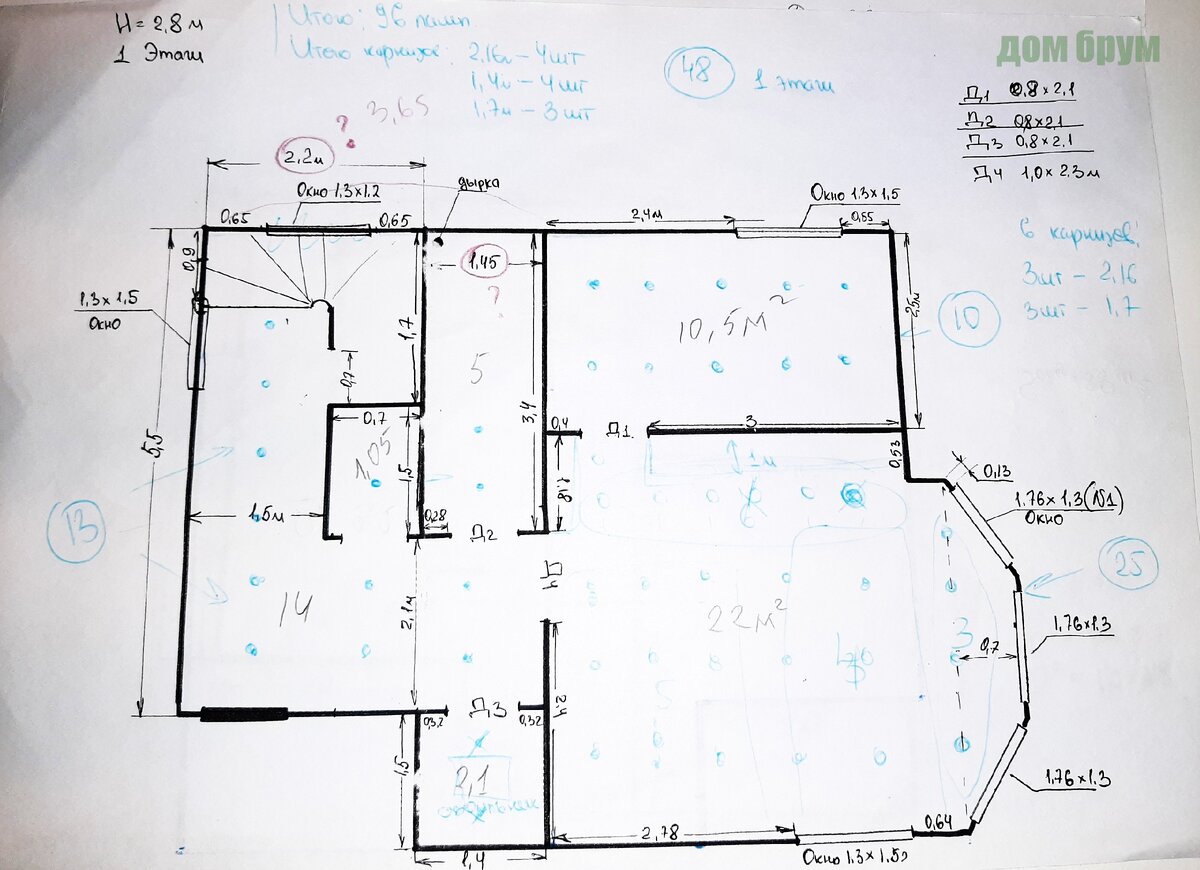 H = 2,8 м
1 Этаж
Итого: 96 ламп.
Итого карнизов: 2,16м - 4шт
1,4м - 4шт
1,7м - 3шт
48
1 этаж
дом брум
Д1 0,8 × 2,1
Д2 0,8×2,1
Д3 0,8 × 2,1
Д4 1,0 × 2,3м
6 карнизов:
3шт - 2,16
3шт - 1,7
? 3,65
2,2м
Окно 1,3×1,2
дырка
0,65
0,65
2,4м
Окно 1.3×1,5
0,55
0,9
1,45
?
1,3 × 1,5
Окно
1,7
5
10,5м²
2,5м
10
0,7
0,7
3,4
0,4
Д1
3
5,5
1,05
1,5
1,8
1м
0,53
0,13
1,76×1,3(№1)
Окно
13
1,5м
0,28
Д2
6
Д4
25
14
2,1м
22м²
1,76×1.3
3
0,7
5
2,4
0,32
Д3
0,32
1,5
2,1
светильник
1,76×1.3
2,78
0,64
1,4
Окно 1.3×1.5